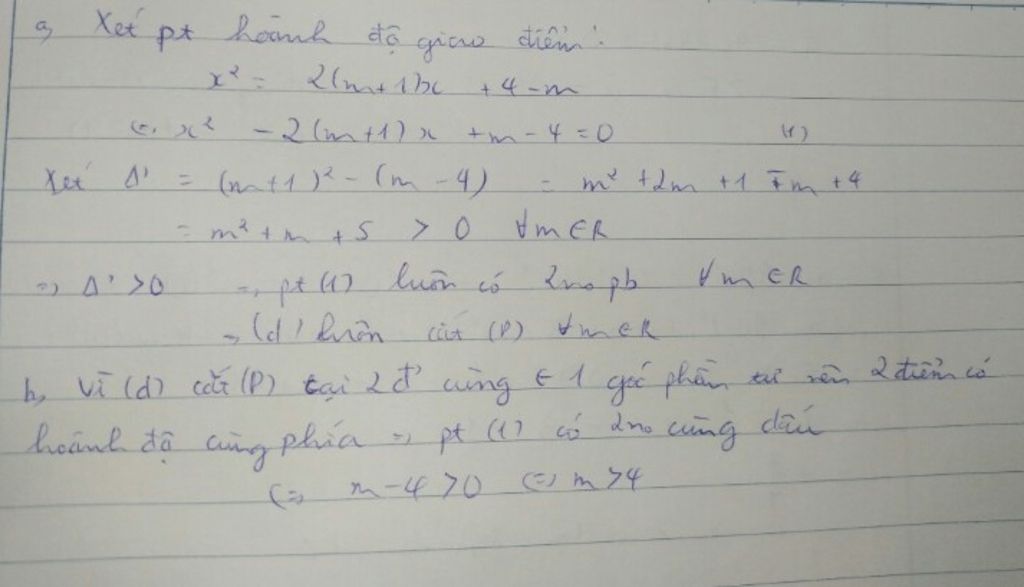 a, Xét pt hoành độ giao điểm:
x² = 2(m+1)x + 4-m
⇔ x² - 2(m+1)x + m - 4 = 0 (1)
Xét Δ' = (m+1)² - (m-4) = m² + 2m + 1 - m + 4
= m² + m + 5 > 0 ∀m∈R
⇒ Δ' > 0 ⇒ pt (1) luôn có 2no pb ∀m∈R
⇒ (d) luôn cắt (P) ∀m∈R
b, Vì (d) cắt (P) tại 2đ' cùng ∈ 1 góc phần tư nên 2 điểm có
hoành độ cùng phía ⇒ pt (1) có 2no cùng dấu
⇔ m-4>0 ⇔ m>4